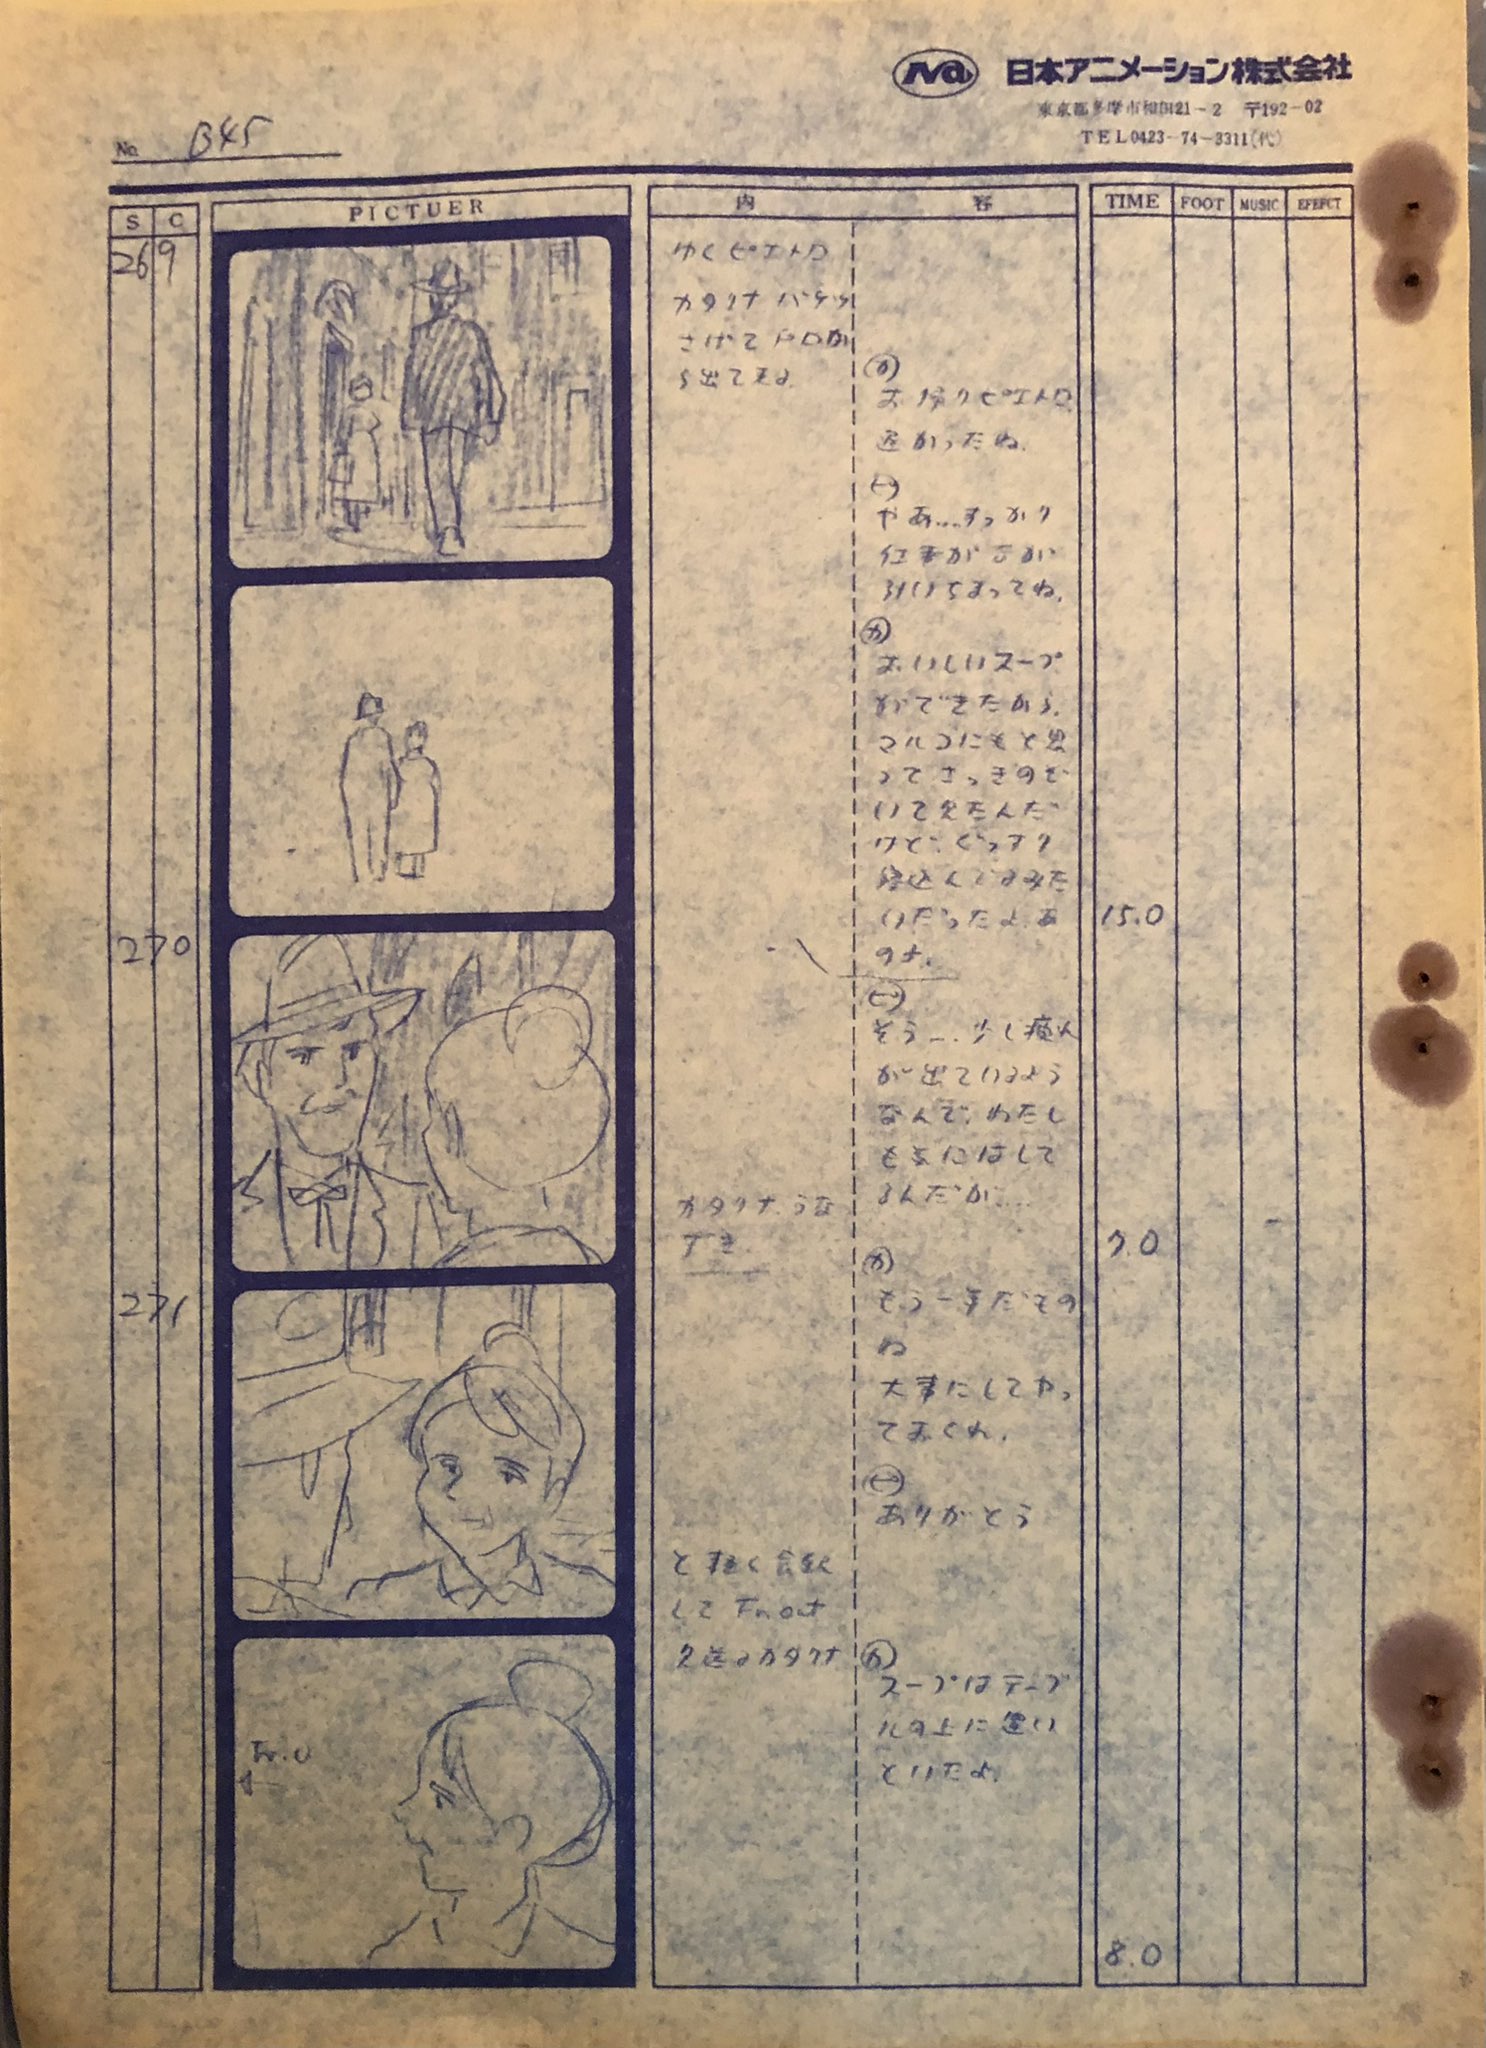 Na 日本アニメーション株式会社
東京都多摩市和田21-2 〒192-02
TEL0423-74-3311(代)
No. B45
S C PICTUER 内 容 TIME FOOT MUSIC EFEFCT
269
ゆくピエトロ
カタリナバケツ
さげて戸口か
ら出てまる
カ
お帰りピエトロ
遅かったね.
ト
やあ...すっかり
仕事がなが
びいちまってね.
カ
おいしいスープ
ができたから.
マルコにもと思
ってさっきのぞ
いて見たんだ
けど、ぐっすり
寝込んでるみた
いだったよ.あ 15.0
の子.
270
ト
そう... 少し疲れ
が出ているよう
なんで、わたし
も気にはして
るんだが....
カタリナ.うな
ずき 7.0
271
カ
もう一年だもの
ね
大事にしてやっ
ておくれ.
ト
ありがとう
と軽く会釈
して Fr.out
見送るカタリナ
Fr.O
カ
スープはテーブ
ルの上に置い
といたよ.
8.0